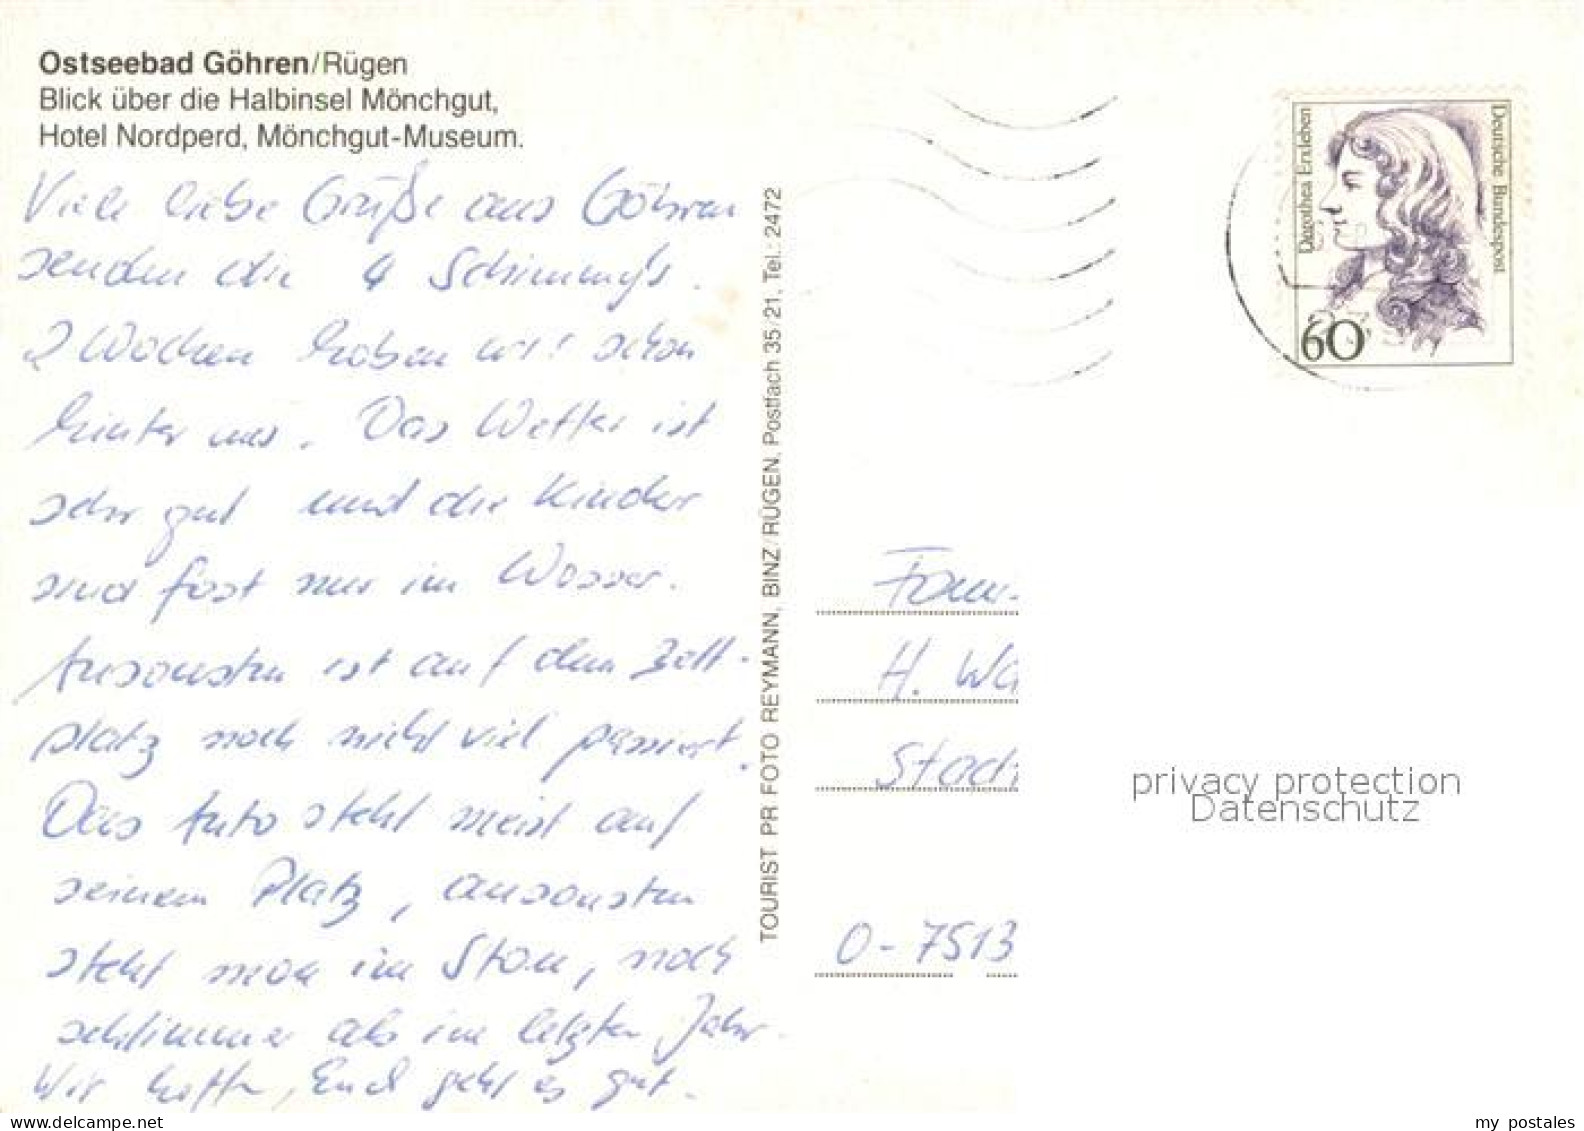 Ostseebad Göhren/Rügen
Blick über die Halbinsel Mönchgut,
Hotel Nordperd, Mönchgut-Museum.
Viele liebe Grüße aus Göhren
senden die 4 Schimmys.
2 Wochen haben wir schon
hinter uns. Das Wetter ist
sehr gut und die Kinder
sind fast nur im Wasser.
Ansonsten ist auf dem Zelt-
platz noch nicht viel passiert.
Das Auto steht meist auf
seinem Platz, ansonsten
steht man im Stau, noch
schlimmer als im letzten Jahr.
Wir hoffen, Euch geht es gut.
TOURIST PR FOTO REYMANN, BINZ/RÜGEN, Postfach 35/21, Tel.: 2472
Dorothea Erxleben
Deutsche Bundespost
60
Fam.
H. Wa
Stadt
O-7513
privacy protection
Datenschutz
my postales